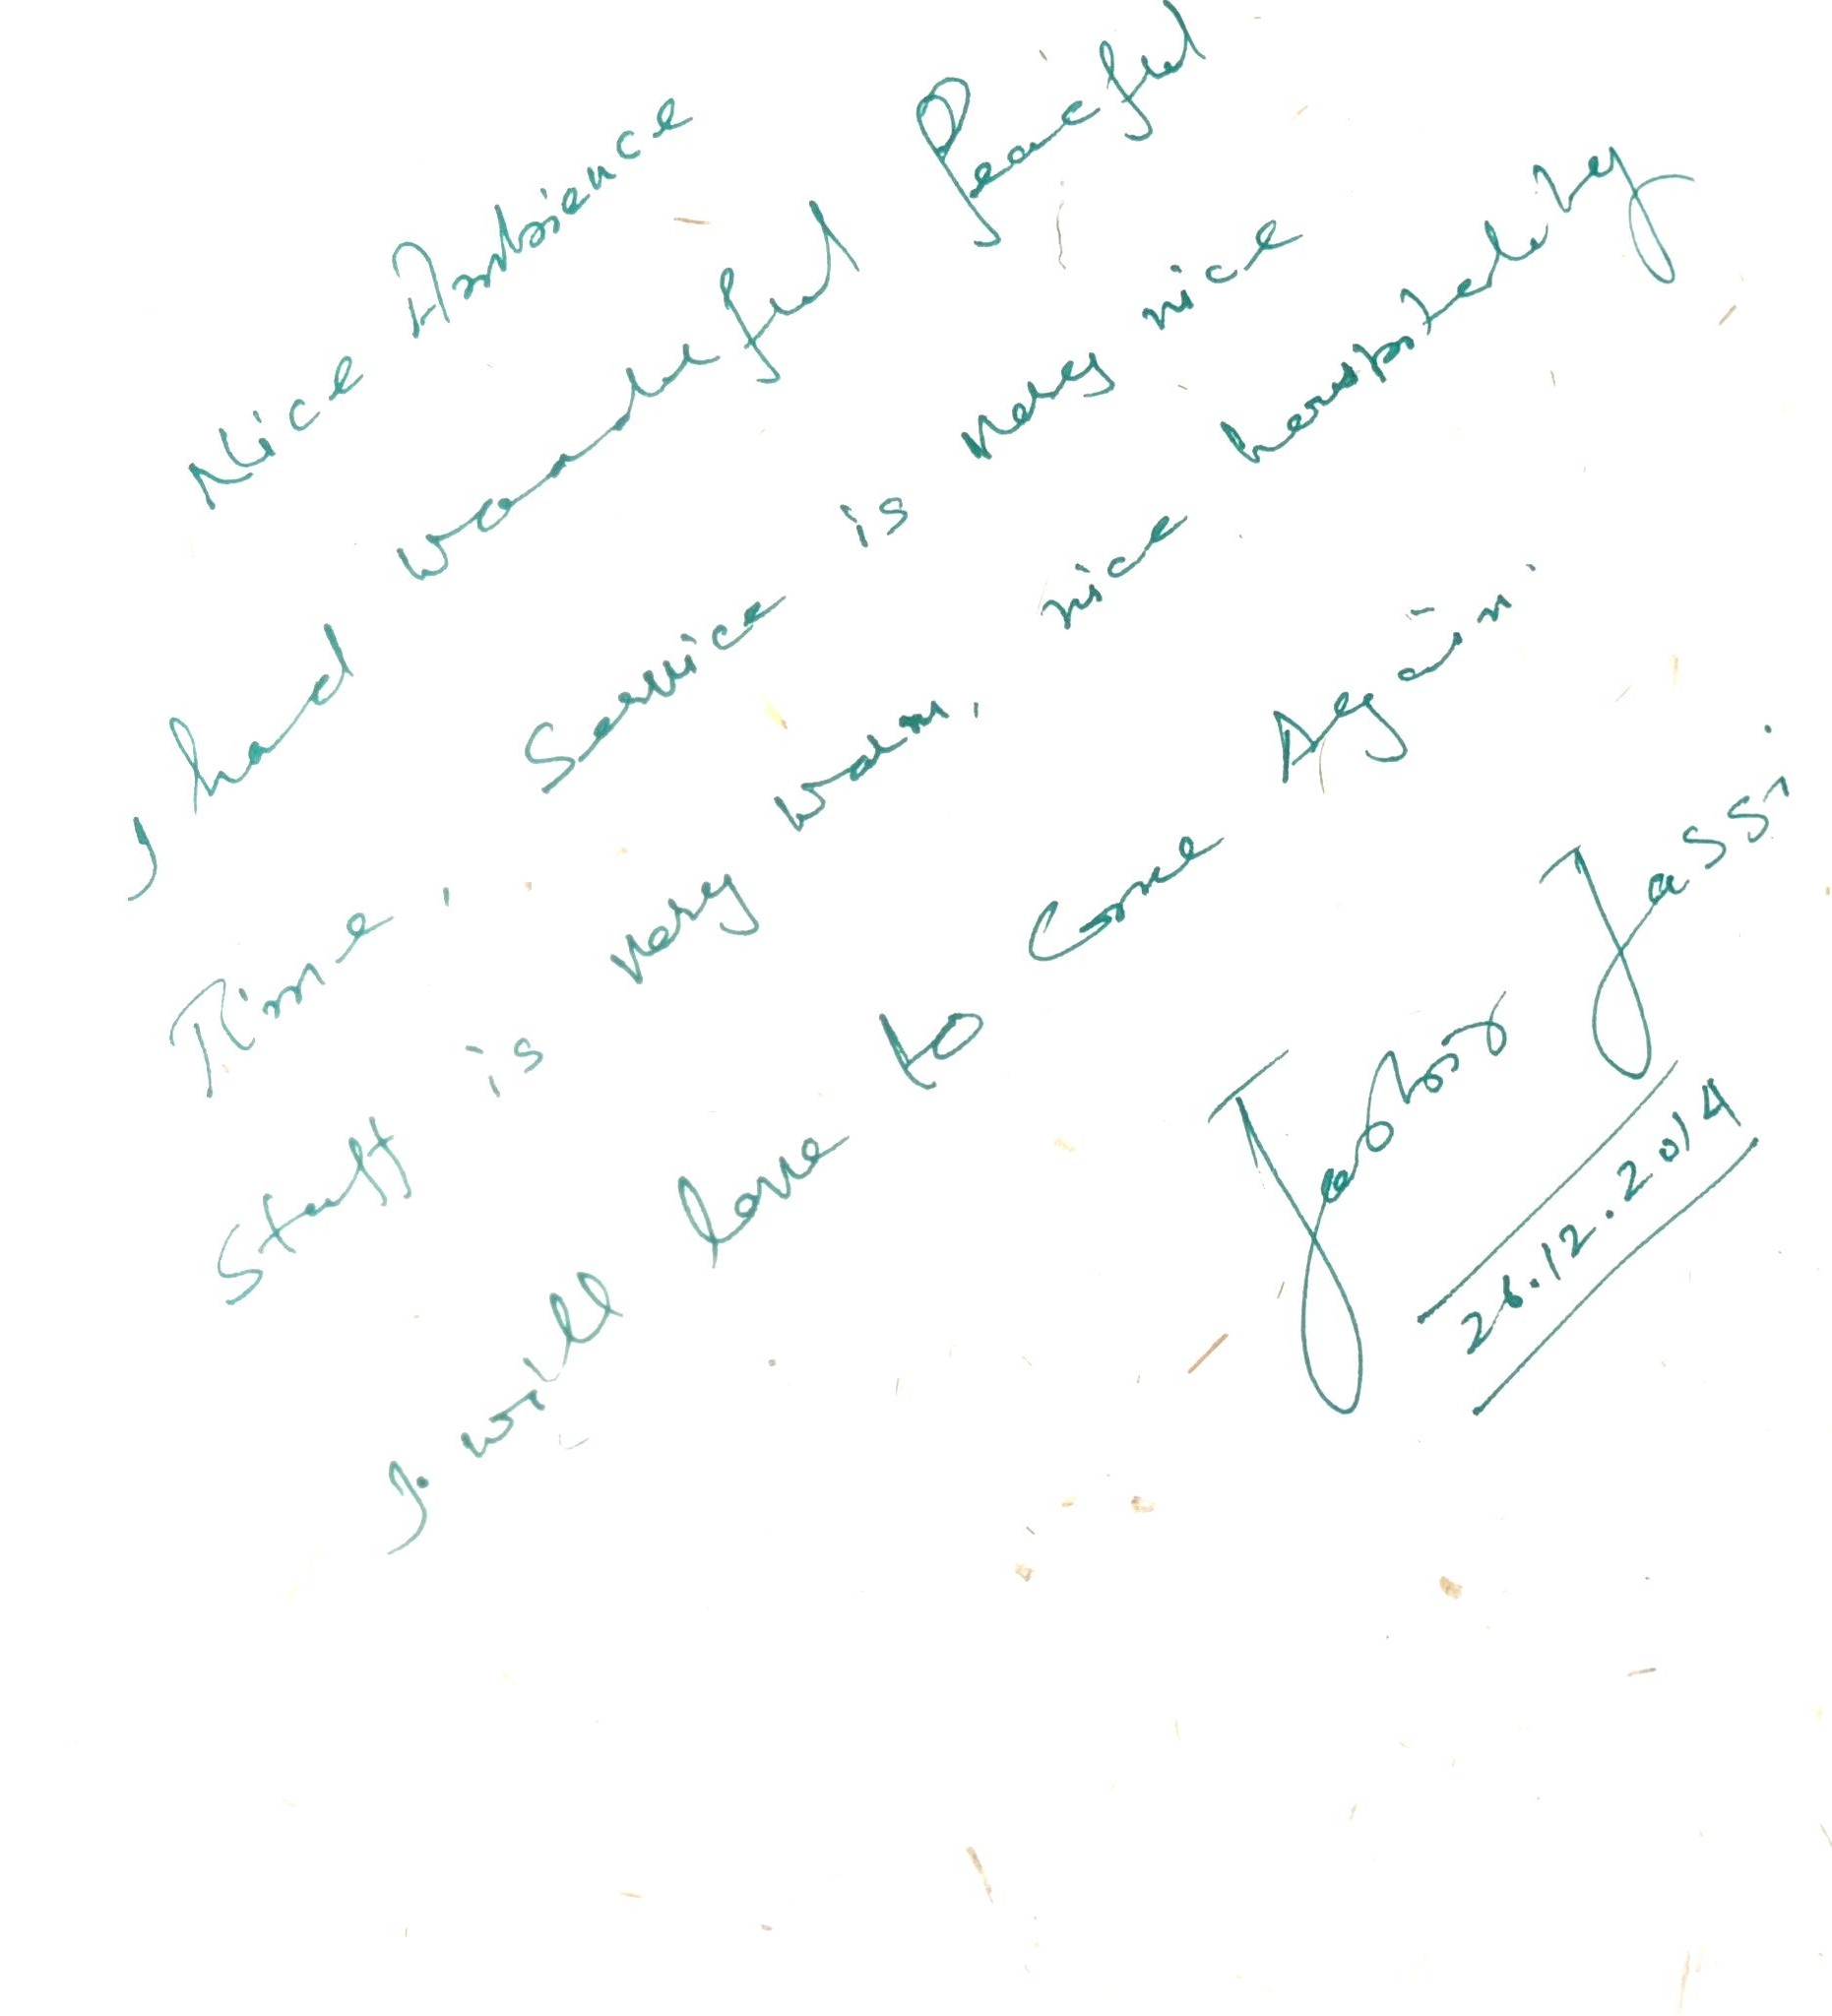 Nice Ambience
I had wonderful Peaceful
Time, Service is very nice
Staff is very warm, nice hospitality
I will love to Come Again.
Jassi.
26.12.2014